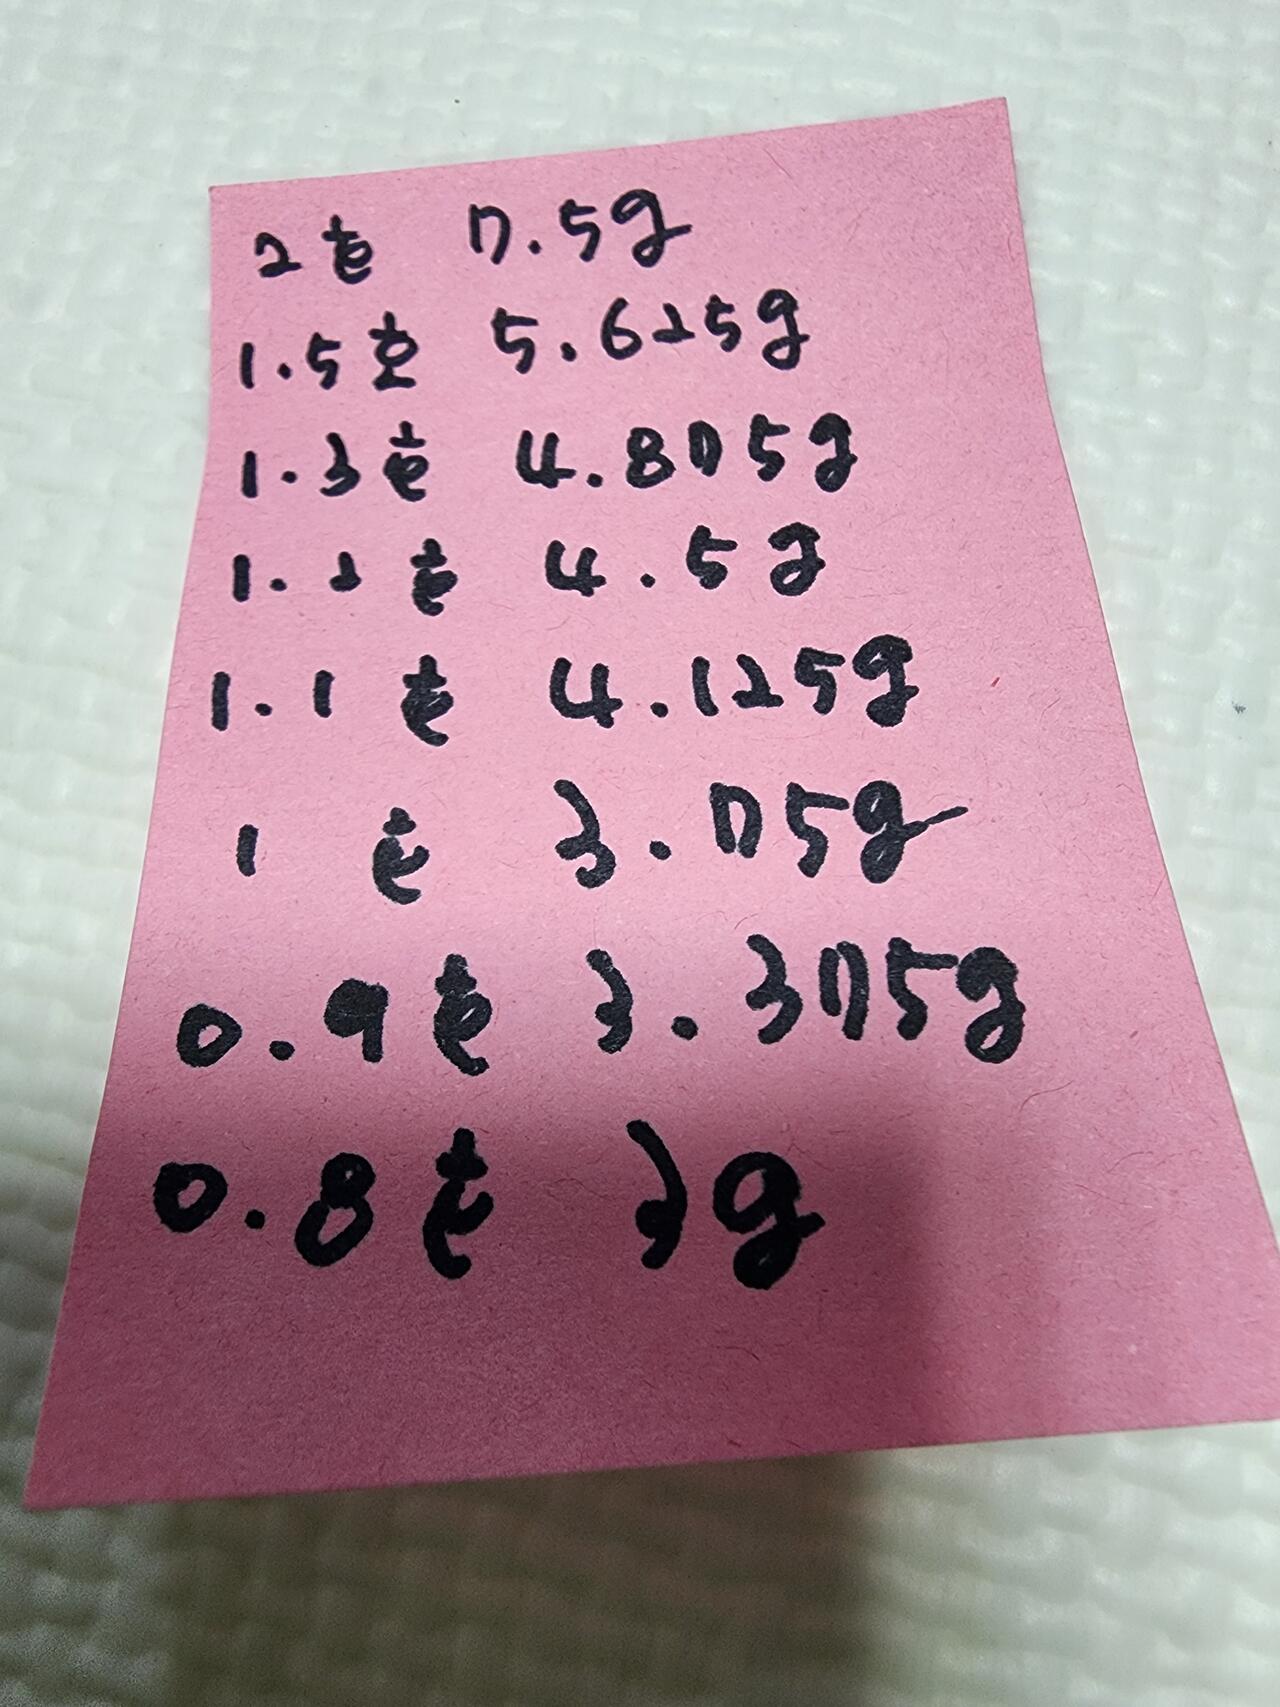 2호 7.5g
1.5호 5.625g
1.3호 4.875g
1.2호 4.5g
1.1호 4.125g
1 호 3.75g
0.9호 3.375g
0.8호 3g